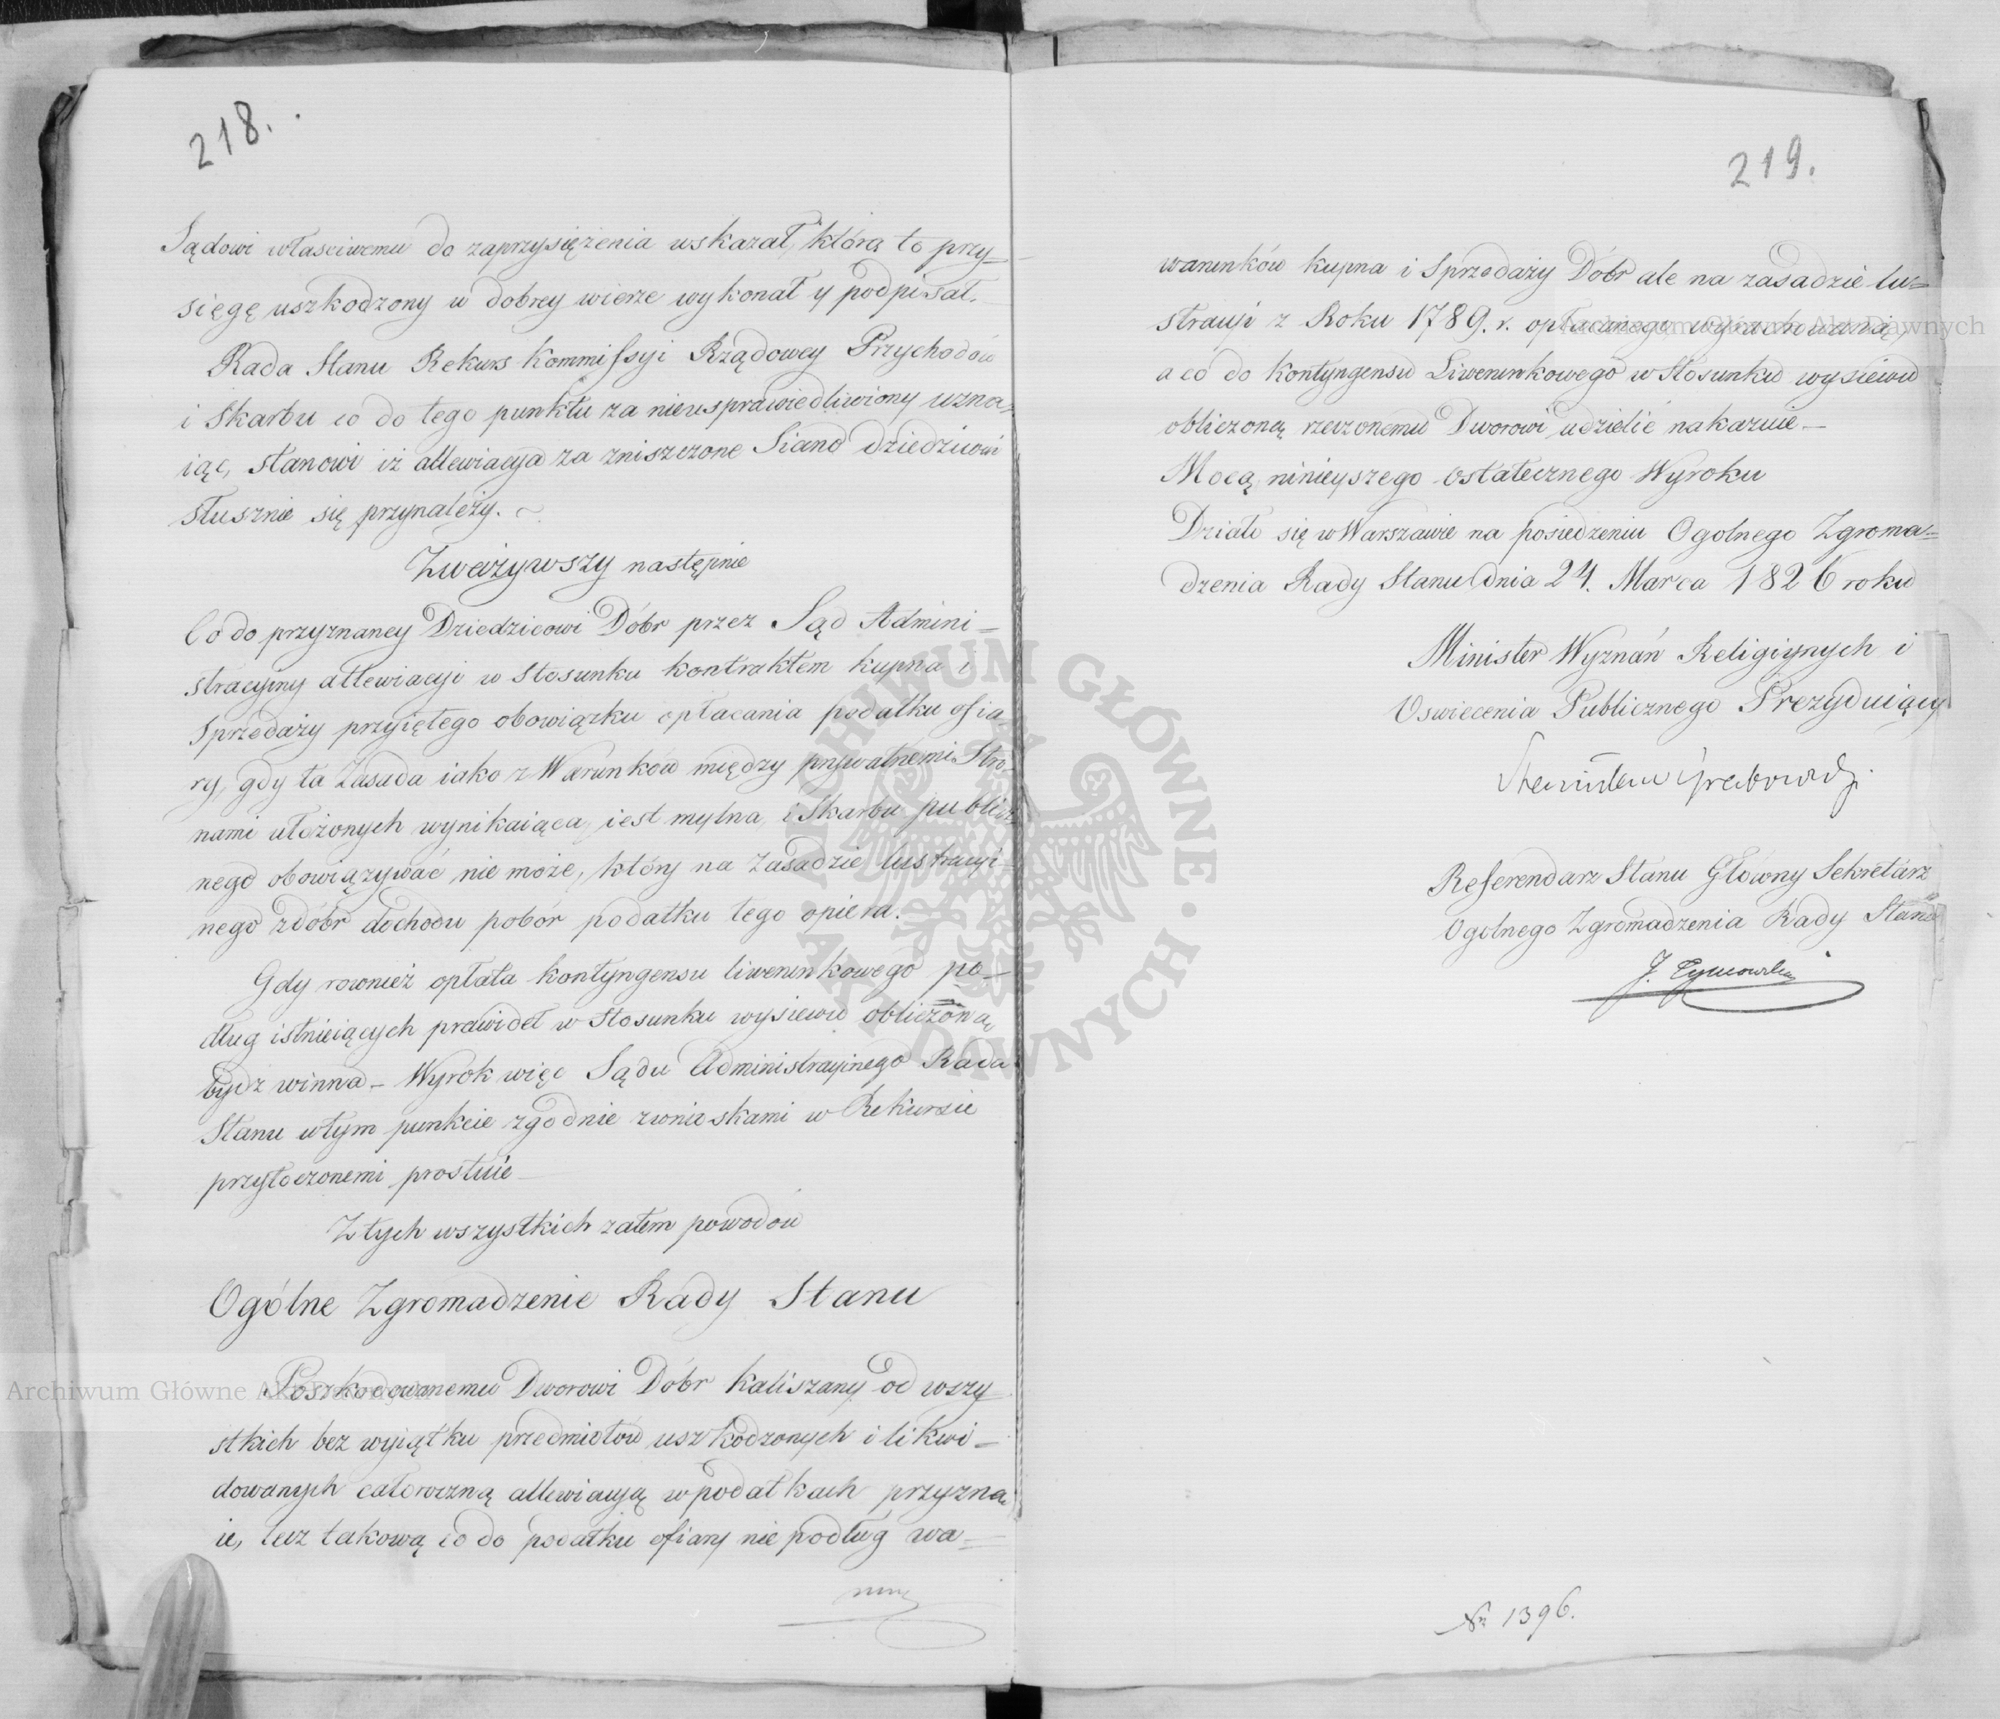 218.
Sądowi właściwemu do zaprzysiężenia wskazał, którą to przy-
sięgę uszkodzony w dobrey wierze wykonał y podpisał.
Rada Stanu Rekurs Kommissyi Rządowey Przychodów
i Skarbu co do tego punktu za nieusprawiedliwiony uzna-
iąc, stanowi iż allewiacya za zniszczone Siano dziedzicowi
słusznie się przynależy.
Zważywszy następnie
Co do przyznaney Dziedzicowi Dóbr przez Sąd Admini-
stracyiny allewiacyi w stosunku kontraktem kupna i
Sprzedaży przyiętego obowiązku opłacania podatku ofia-
ry, gdy ta Zasada iako z Warunków między prywatnemi Stro-
nami ułożonych wynikaiąca, iest mylna, i Skarbu public-
nego obowiązywać nie może, który na Zasadzie lustracyi-
nego z dóbr dochodu pobór podatku tego opiera.
Gdy rownież opłata kontyngensu liwerunkowego po-
dług istnieiących prawideł w stosunku wysiewu obliczoną
bydz winna - Wyrok więc Sądu Administracyinego Rada
Stanu w tym punkcie zgodnie z wnioskami w Rekursie
przytoczonemi prostuie -
Z tych wszystkich zatem powodów
Ogólne Zgromadzenie Rady Stanu
Poszkodowanemu Dworowi Dóbr Kaliszany od wszy-
stkich bez wyiątku przedmiotów uszkodzonych i likwi-
dowanych całoroczną allewiacyą w podatkach przyzna-
ie, lecz takową co do podatku ofiary nie podług wa-
219.
warunków kupna i Sprzedaży Dóbr ale na zasadzie lu-
stracyi z Roku 1789. r. opłacanego, wyrachowaną,
a co do kontyngensu Liwerunkowego w Stosunku wysiewu
obliczoną rzeczonemu Dworowi udzielić nakazuie -
Mocą ninieyszego ostatecznego Wyroku
Działo się w Warszawie na posiedzeniu Ogolnego Zgroma-
dzenia Rady Stanu dnia 24. Marca 1826 roku
Minister Wyznań Religiynych i
Oswiecenia Publicznego Prezyduiący
Stanisław Grabowski
Referendarz Stanu Główny Sekretarz
Ogolnego Zgromadzenia Rady Stanu
J. Tymowski
Nr 1396.
ARCHIWUM GŁÓWNE AKT DAWNYCH
Archiwum Główne Akt Dawnych
Archiwum Główne Akt Dawnych